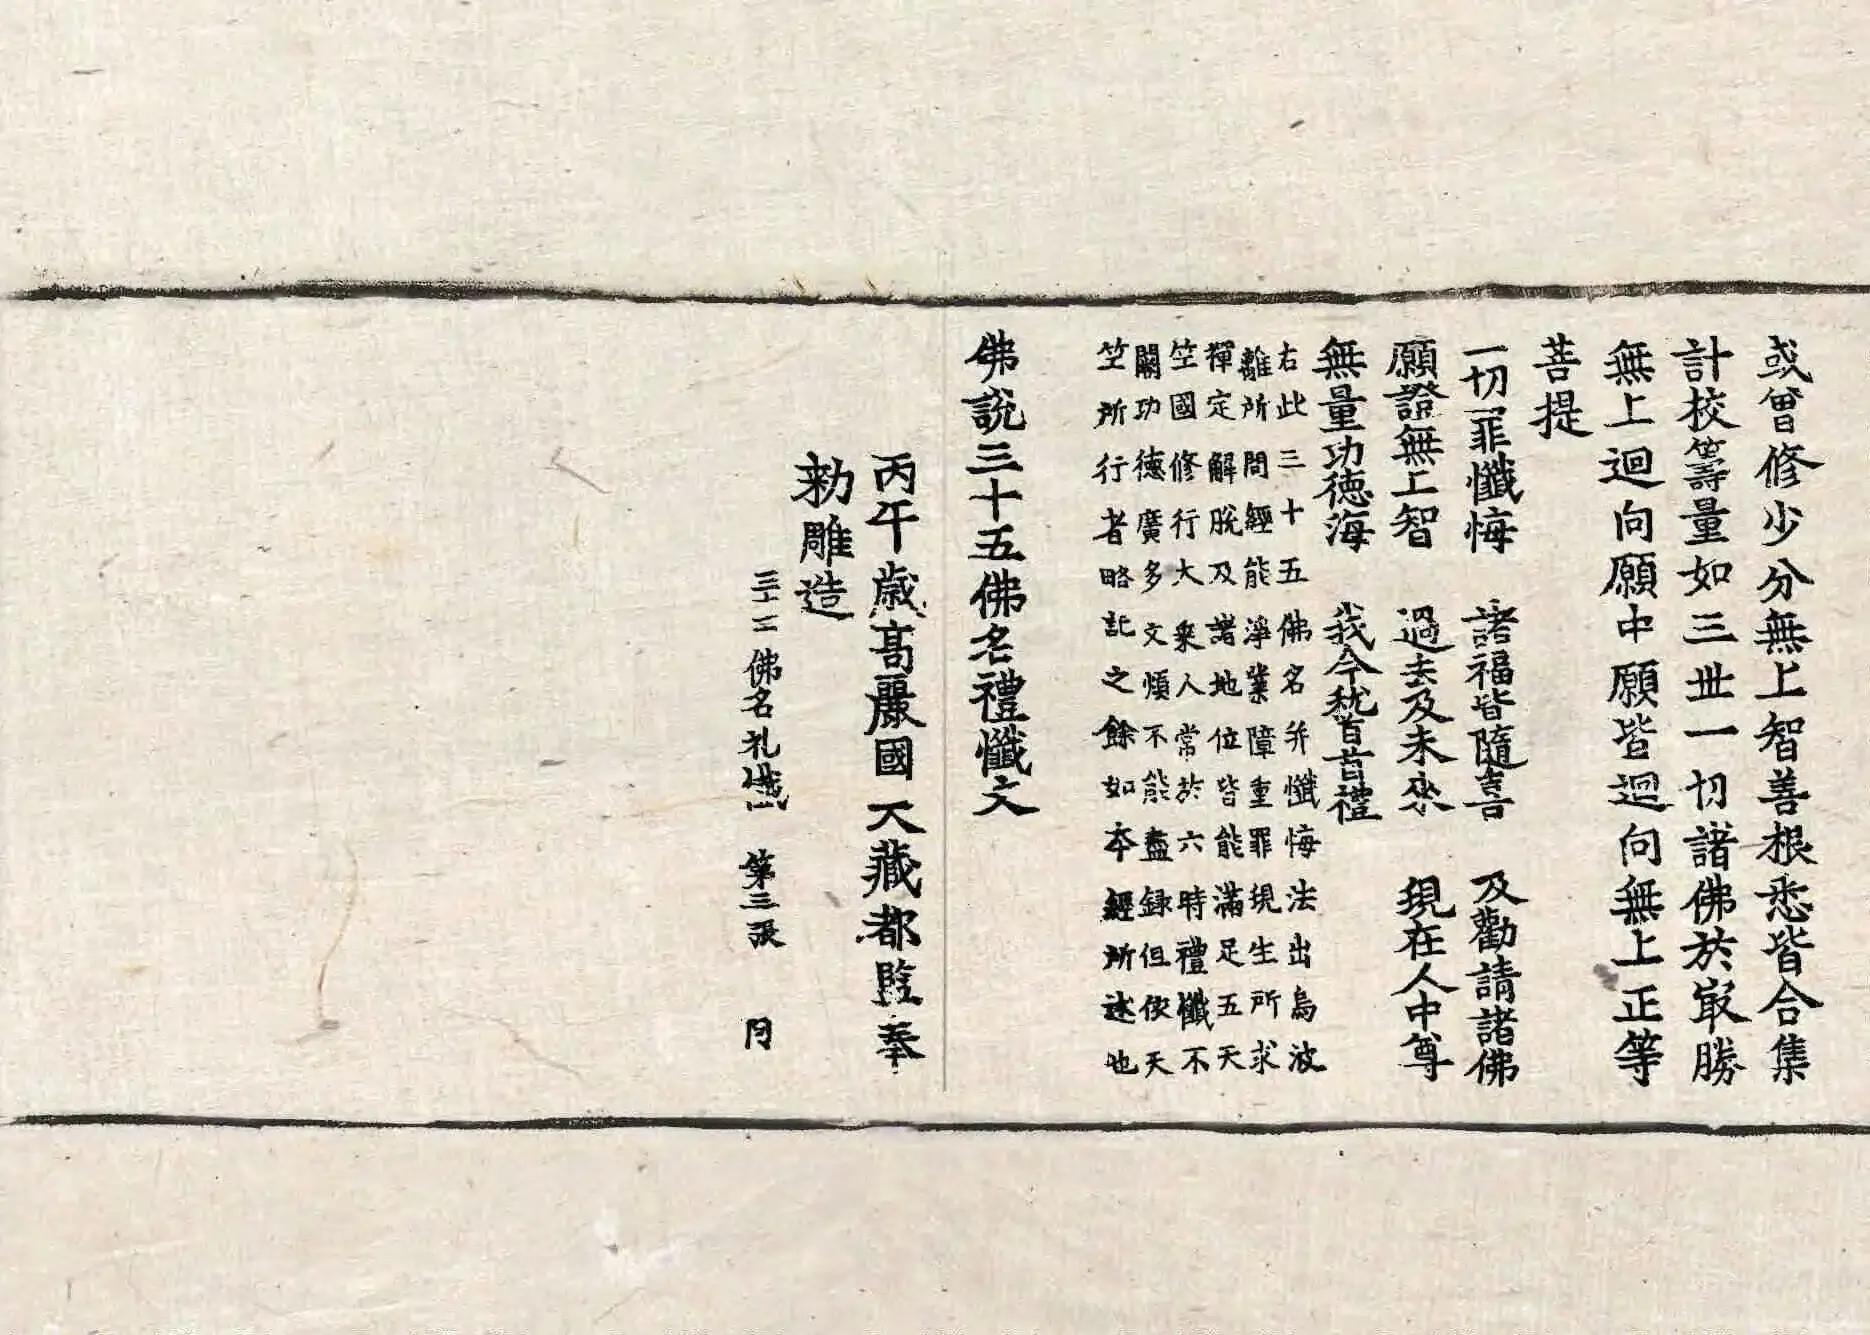 或曾修少分無上智善根悉皆合集
計校籌量如三世一切諸佛於㝡勝
無上迴向願中願皆迴向無上正等
菩提
一切罪懺悔　諸福皆隨喜　及勸請諸佛
願證無上智　過去及未來　現在人中尊
無量功德海　我今稽首禮
右此三十五佛名并懺悔法出烏波
離所問經能淨業障重罪現生所求
禪定解脫及諸地位皆能滿足五天
竺國修行大乘人常於六時禮懺不
闕功德廣多文煩不能盡録但使天
竺所行者略記之餘如本經所述也
佛說三十五佛名禮懺文
丙午歲高麗國大藏都監奉
勅雕造
佛名礼懺　第三張